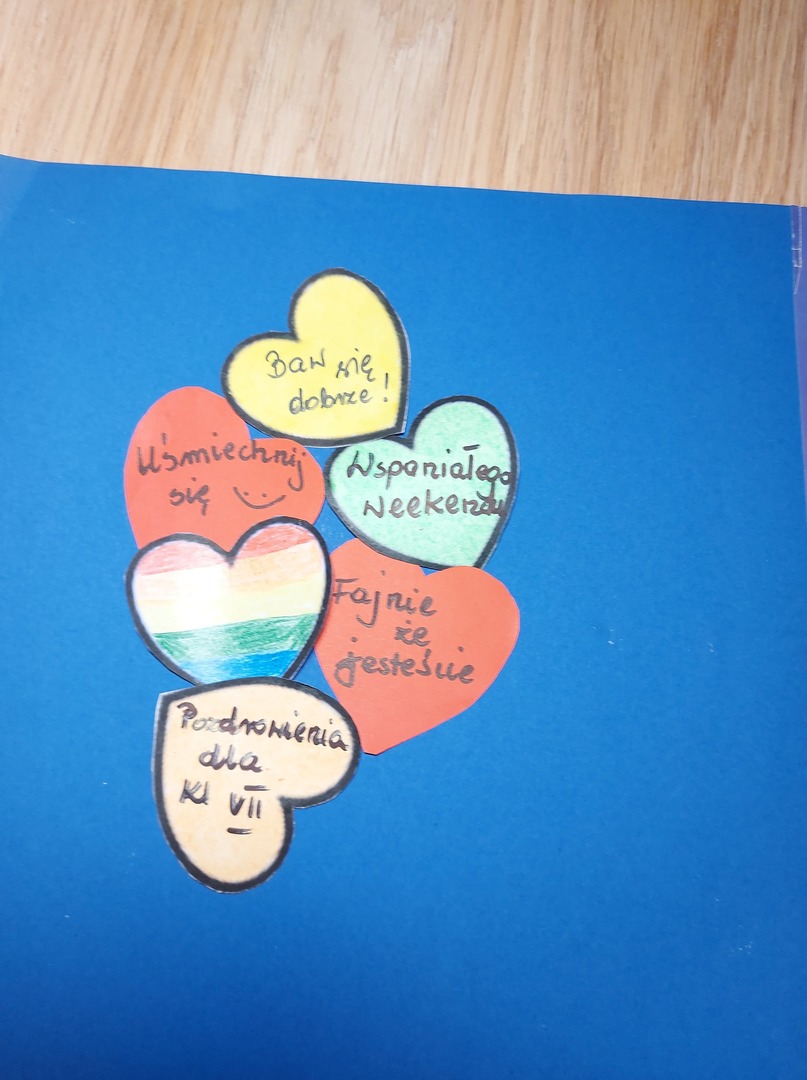 Baw się
dobrze!
Uśmiechnij
się
Wspaniałego
weekendu
Fajnie
że
jesteście
Pozdrowienia
dla
Kl VII